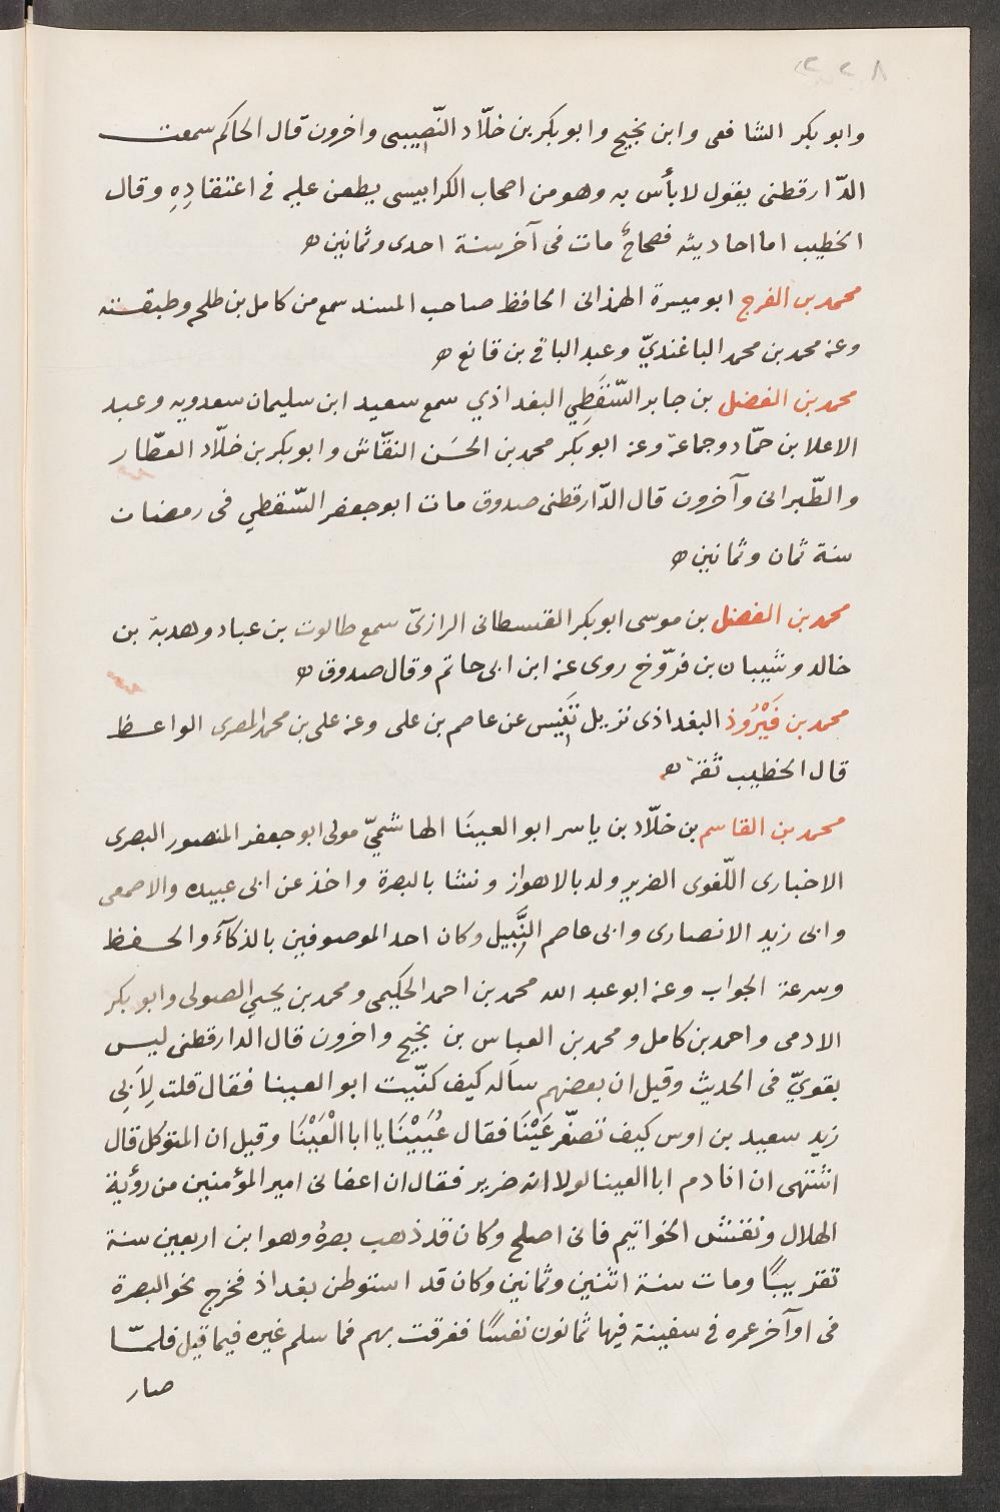 وابو بكر الشافعى وابن نجيح وابو بكر بن خلّاد النّصيبى واخرون قال الحاكم سمعت
الدّارقطنى يقول لا بأس به وهو من اصحاب الكرابيسى يطعن عليه فى اعتقادِهِ وقال
الخطيب اما احاديثه فصحاحٌ مات فى آخر سنة احدى وثمانين ه
محمد بن الفرج ابو ميسرة الهمذانى الحافظ صاحب المسند سمع من كامل بن طلحه وطبقته
وعنه محمد بن محمد الباغنديّ وعبد الباقى بن قانع ه
محمد بن الفضل بن جابر السّقَطِي البغداذي سمع سعيد ابن سليمان سعدويه وعبد
الاعلا بن حمّاد وجماعة وعنه ابو بَكر محمد بن الحسَن النقّاش وابو بكر بن خلّاد العطّار
والطّبرانى وآخرون قال الدّارقطنى صدوق مات ابو جعفر السّقطي فى رمضان
سنة ثمان وثمانين ه
محمد بن الفضل بن موسى ابو بكر القسطانى الرازىّ سمع طالوت بن عباد وهدبة بن
خالد وشيبان بن فرّوخ روى عنه ابن ابى حاتم وقال صدوق ه
محمد بن فَيْرُوذ البغداذى نزيل تنيس عن عاصم بن على وعنه على بن محمد المصرى الواعظ
قال الخطيب ثقة ه
محمد بن القاسم بن خلّاد بن ياسر ابو العينَا الهاشميّ مولى ابو جعفر المنصور البصرى
الاخبارى اللّغوى الضرير ولد بالاهواز ونشا بالبصرة واخذ عن ابى عبيده والاصمعى
وابى زيد الانصارى وابى عاصم النَّبيل وكان احد الموصوفين بالذكآء والحفظ
وسرعة الجواب وعنه ابو عبد الله محمد بن احمد الحكيمى ومحمد بن يحيى الصولى وابو بكر
الادمى واحمد بن كامل ومحمد بن العباس بن نجيح واخرون قال الدارقطنى ليس
بقويّ فى الحديث وقيل ان بعضهم ساَله كيف كنّيت ابو العينا فقال قلت لِاَبِى
زيد سعيد بن اوس كيف تصغّر عَيْنَا فقال عُيَيْنَا يا ابا الْعَيْنَا وقيل ان المتوكل قال
اشتهى ان انادم ابا العينا لولا انه ضرير فقال ان اعفانى امير المؤمنين من رؤية
الهلال ونقش الخواتيم فانى اصلح وكان قد ذهب بصرهُ وهو ابن اربعين سنة
تقريبًا ومات سنة اثنين وثمانين وكان قد استوطن بغداذ فخرج نحو البصرة
فى اوآخر عمره فى سفينة فيها ثمانون نفسًا فغرقت بهم فما سلم غيره فيما قيل فلمّا
صار